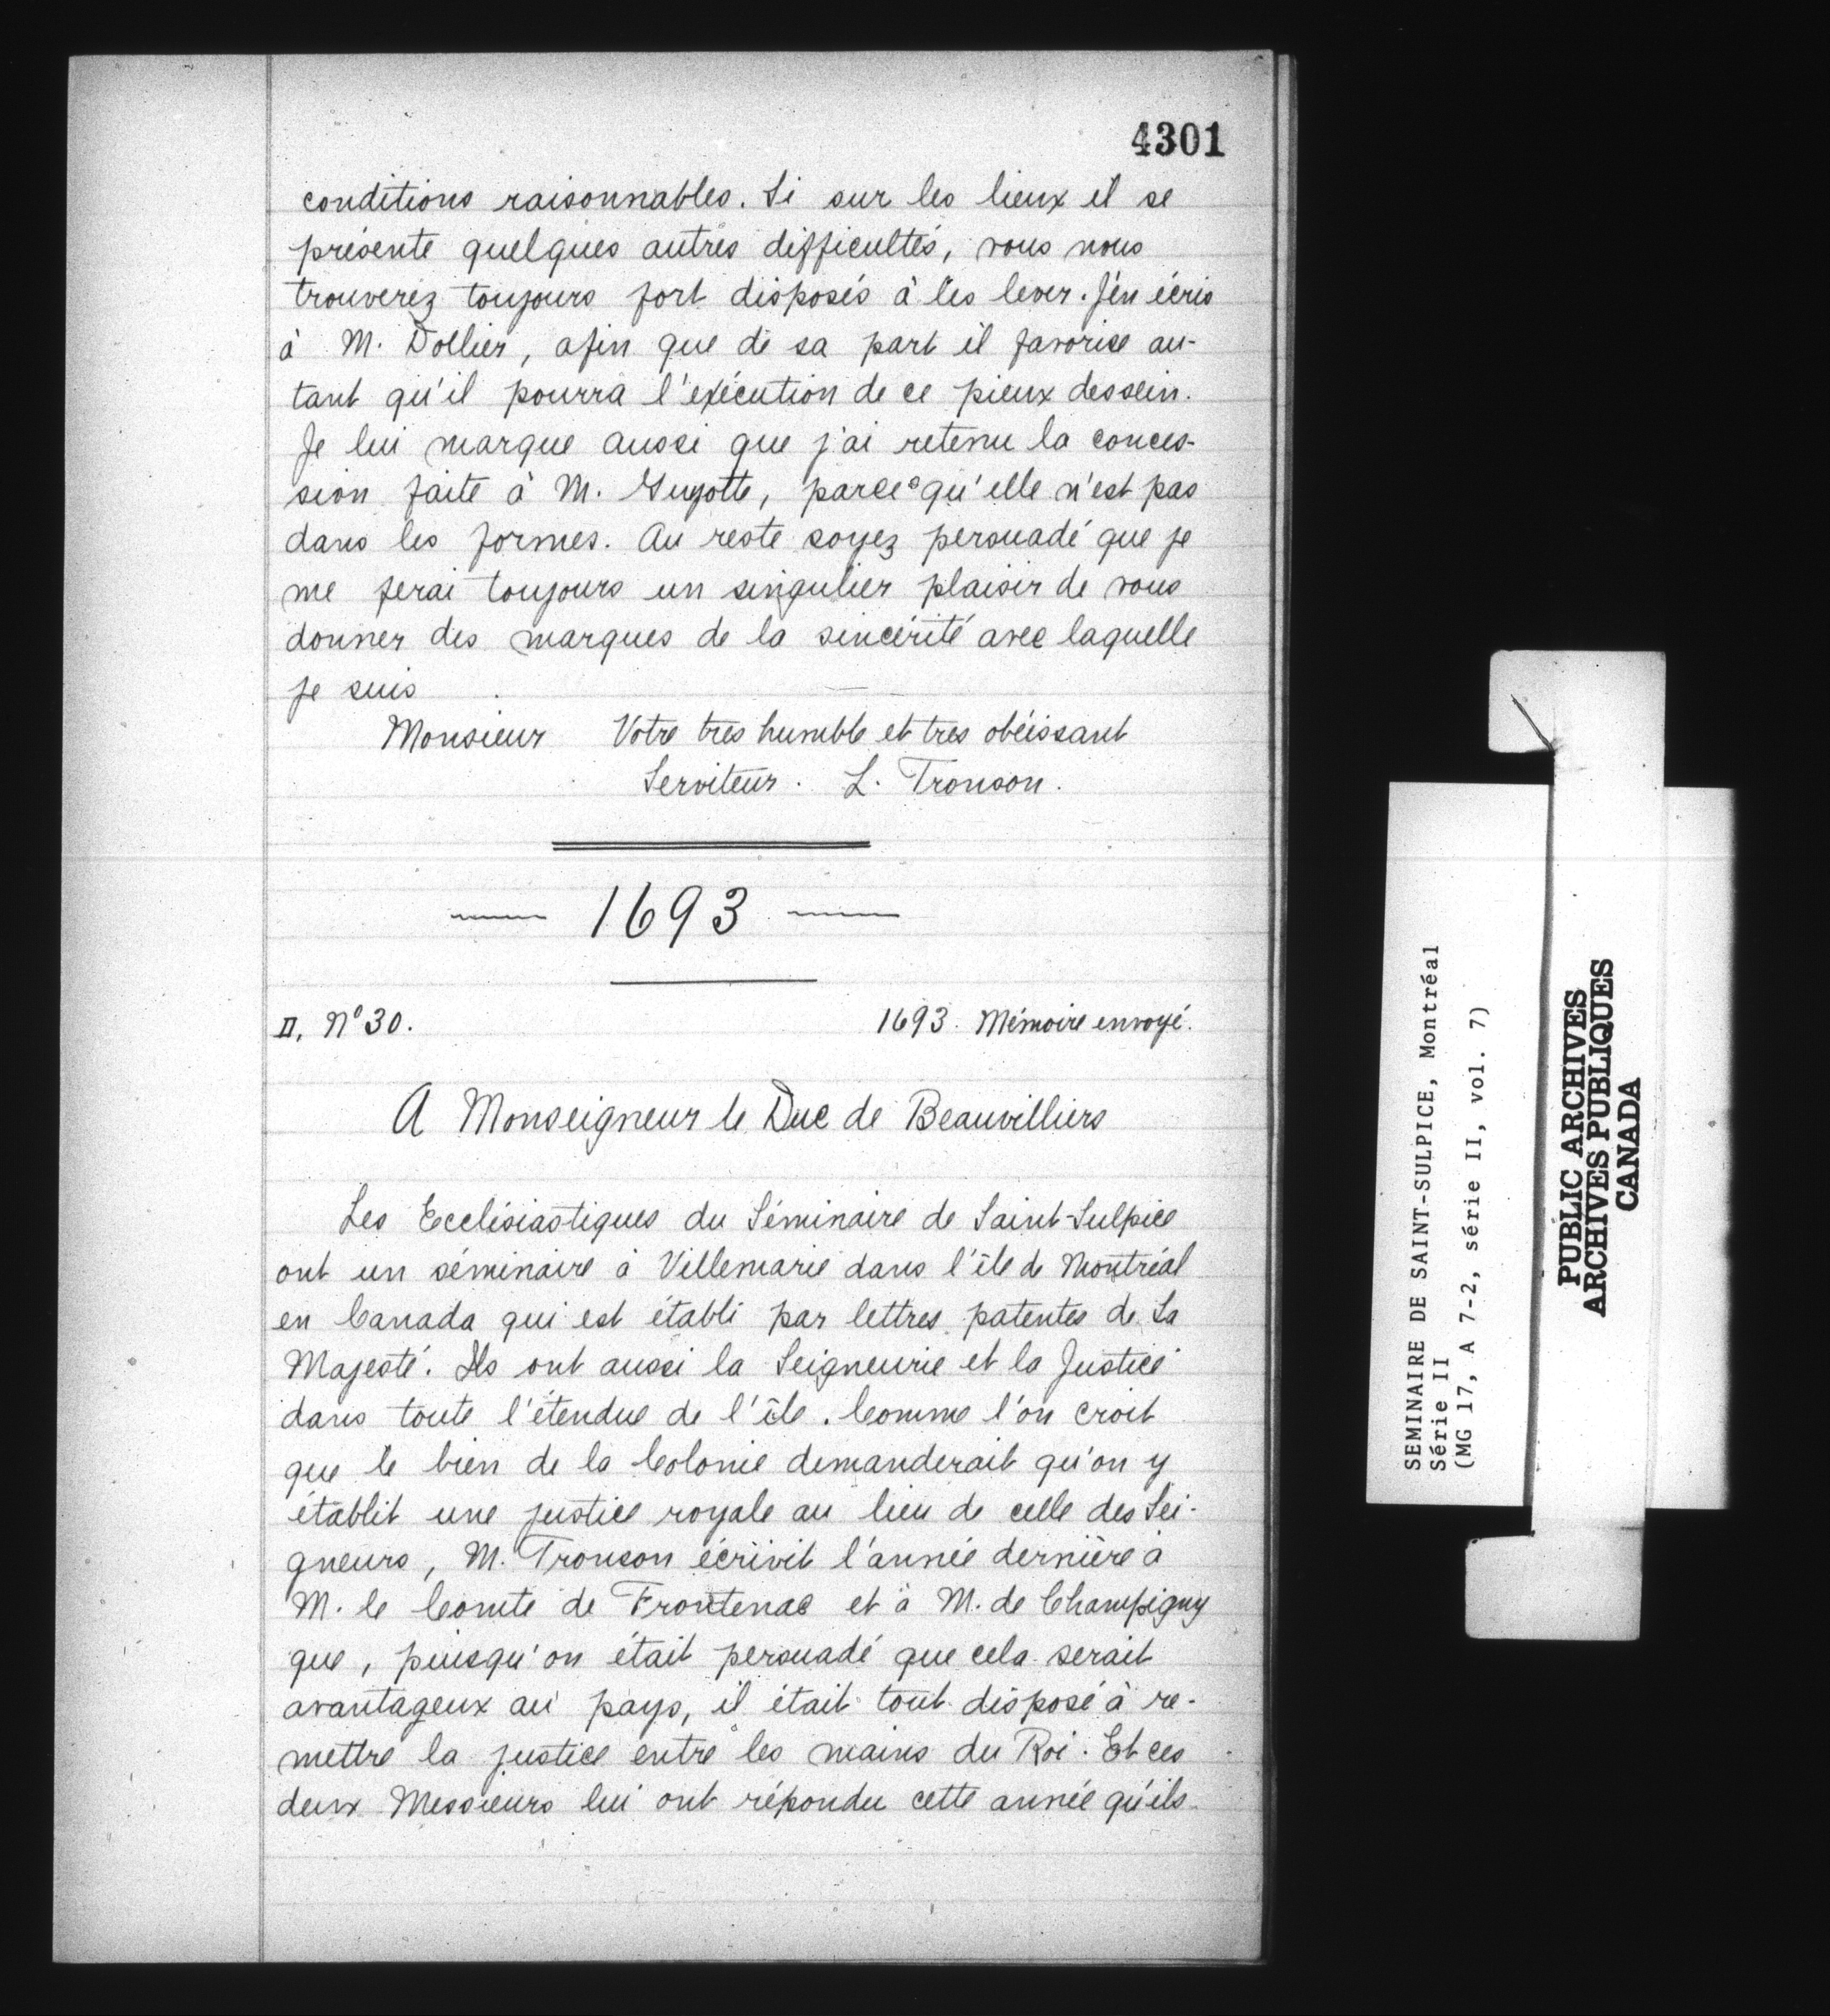 4301
conditions raisonnables. Si sur les lieux il se
présente quelques autres difficultés, vous nous
trouverez toujours fort disposés à les lever. J'en écris
à M. Dollier, afin que de sa part il favorise au-
tant qu'il pourra l'exécution de ce pieux dessein.
Je lui marque aussi que j'ai retenu la conces-
sion faite à M. Guyotte, parce qu'elle n'est pas
dans les formes. Au reste soyez persuadé que je
me ferai toujours un singulier plaisir de vous
donner des marques de la sincérité avec laquelle
je suis
Monsieur Votre très humble et très obéissant
Serviteur. L. Tronson.
— 1693 —
II. N° 30. 1693. Mémoire envoyé.
A Monseigneur le Duc de Beauvilliers
Les Ecclésiastiques du Séminaire de Saint-Sulpice
ont un séminaire à Villemarie dans l'île de Montréal
en Canada qui est établi par lettres patentes de Sa
Majesté. Ils ont aussi la Seigneurie et la Justice
dans toute l'étendue de l'île. Comme l'on croit
que le bien de la Colonie demanderait qu'on y
établit une justice royale au lieu de celle des Sei-
gneurs, M. Tronson écrivit l'année dernière à
M. le Comte de Frontenac et à M. de Champigny
que, puisqu'on était persuadé que cela serait
avantageux au pays, il était tout disposé à re-
mettre la justice entre les mains du Roi. Et ces
deux Messieurs lui ont répondu cette année qu'ils
SEMINAIRE DE SAINT-SULPICE, Montréal
Série II
(MG 17, A 7-2, série II, vol. 7)
PUBLIC ARCHIVES
ARCHIVES PUBLIQUES
CANADA